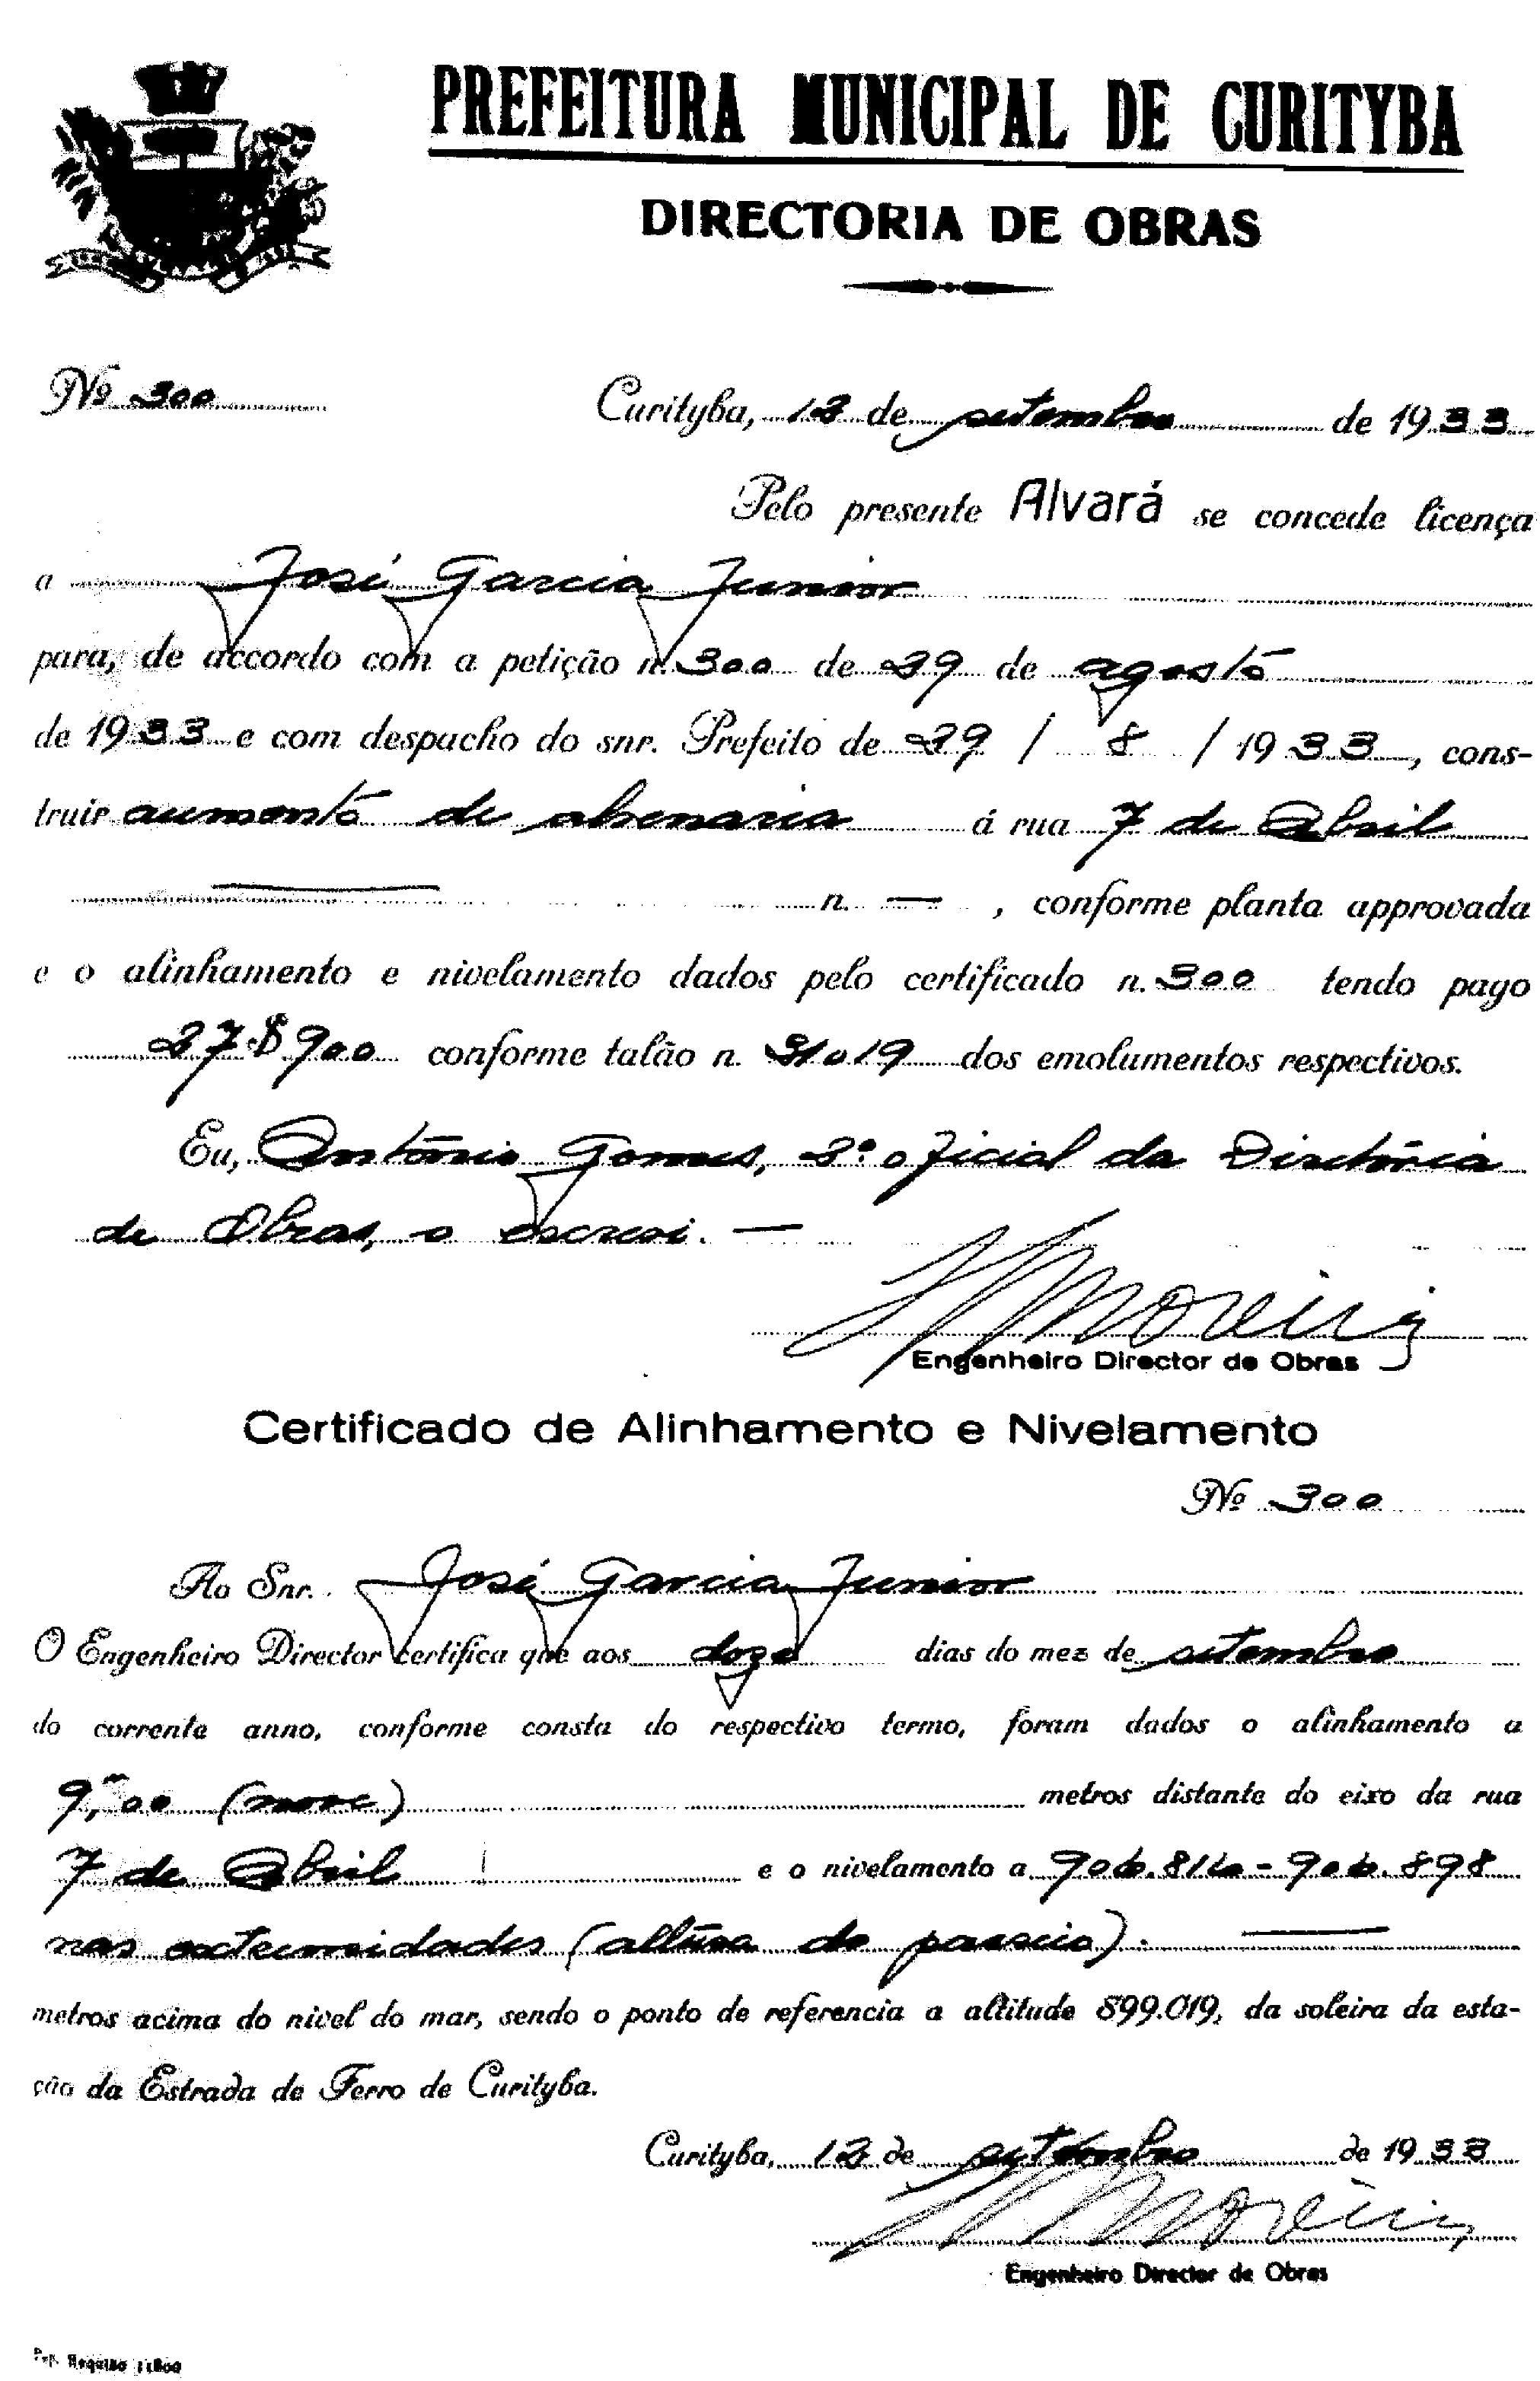 PREFEITURA MUNICIPAL DE CURITYBA
DIRECTORIA DE OBRAS
Nº 300
Curityba, 12 de setembro de 1933
Pelo presente Alvará se concede licença
a José Garcia Junior
para, de accordo com a petição n. 300 de 29 de agosto
de 1933 e com despacho do snr. Prefeito de 29 / 8 / 1933, cons-
truir aumento de alvenaria á rua 7 de Abril
n. — , conforme planta approvada
e o alinhamento e nivelamento dados pelo certificado n. 300 tendo pago
27$900 conforme talão n. 31019 dos emolumentos respectivos.
Eu, Antônio Gomes, 2º oficial da Diretória
de Obras, o escrevi. —
Moreira
Engenheiro Director de Obras
Certificado de Alinhamento e Nivelamento
Nº 300
Ao Snr. José Garcia Junior
O Engenheiro Director certifica que aos doze dias do mez de setembro
do corrente anno, conforme consta do respectivo termo, foram dados o alinhamento a
9,ᵐ00 (nove) metros distante do eixo da rua
7 de Abril e o nivelamento a 906.816 - 906.898
nas extremidades (altura do passeio).
metros acima do nivel do mar, sendo o ponto de referencia a altitude 899.019, da soleira da esta-
ção da Estrada de Ferro de Curityba.
Curityba, 12 de setembro de 1933
Moreira
Engenheiro Director de Obras
Pap. Requião